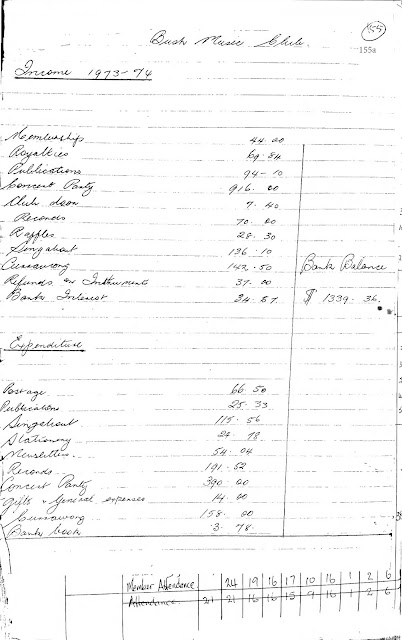 155
Bush Music Club.
155a
Income 1973-74
Memberships 44.00
Royalties 69.84
Publications 94-10
Concert Party 916.00
Club door 7.40
Records 70.00
Raffles 28.30
Singabout 136.10
Currawong 142.50 Bank Balance
Refunds on Instruments 37.00
Bank Interest 34.57 $ 1339.36.
Expenditure
Postage 66.50
Publications 25.33
Singabout 115.56
Stationery 24.78
Newsletters 54.04
Records 191.52
Concert Party 390.00
Gifts & General expenses 14.00
Currawong 158.00
Bank book 3.78.
Member Attendance 24 19 16 17 10 16 1 2 6
Attendance 21 21 16 16 15 9 16 1 2 6